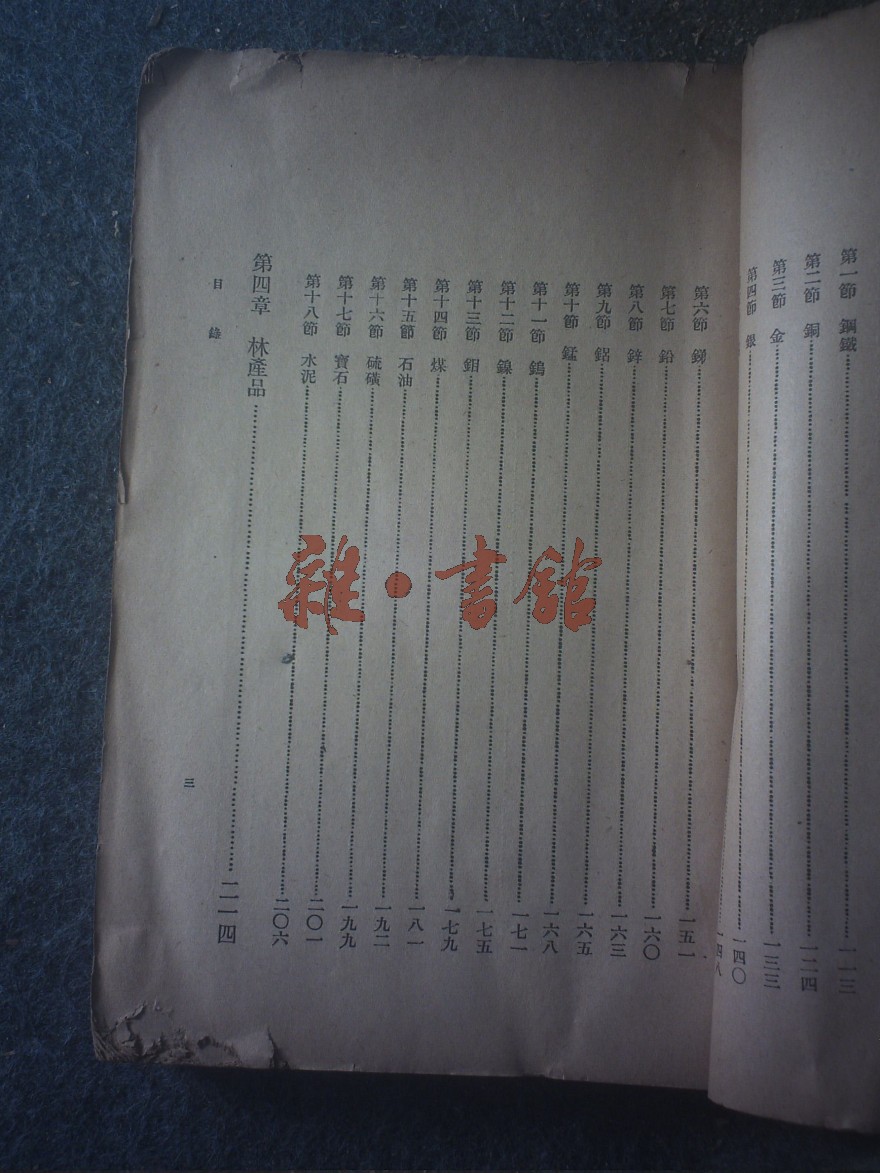 第一節 鋼鐵……一一三
第二節 銅……一二四
第三節 金……一三三
第四節 銀……一四〇
……一四八
第六節 銻……一五一
第七節 鉛……一六〇
第八節 鋅……一六三
第九節 鋁……一六五
第十節 錳……一六八
第十一節 鎢……一七一
第十二節 鎳……一七五
第十三節 鉬……一七九
第十四節 煤……一八一
第十五節 石油……一九二
第十六節 硫磺……一九九
第十七節 寶石……二〇一
第十八節 水泥……二〇六
第四章 林產品……二一四
目錄
三
雜·書館